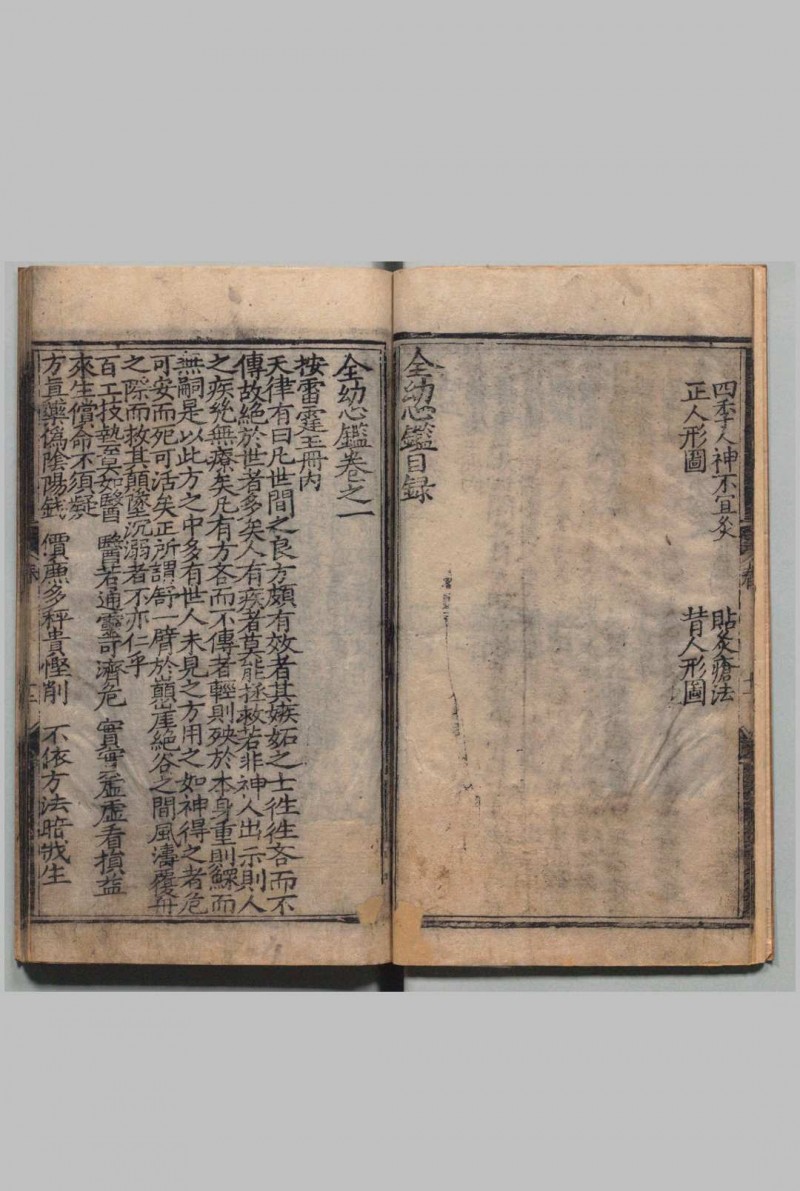 四季人神不宜灸　貼灸瘡法
正人形圖　昔人形圖
全幼心鑑目録
全幼心鑑卷之一
按雷霆玉册内
天律有曰凡世間之良方頗有效者其嫉妬之士徃徃吝而不
傳故絶於世者多矣人有疾者莫能拯救若非神人出示則人
之疾終無療矣凡有方吝而不傳者輕則殃於本身重則鰥而
無嗣是以此方之中多有世人未見之方用之如神得之者危
可安而死可活矣正所謂舒一臂於巔崖絶谷之間風濤覆舟
之際而救其顛墜沉溺者不亦仁乎
百工技埶莫如醫　醫若通靈可濟危　實實虛虛看損益
來生償命不須疑
方真藥僞陰陽錢　價廉多秤貴慳削　不依方法暗戕生